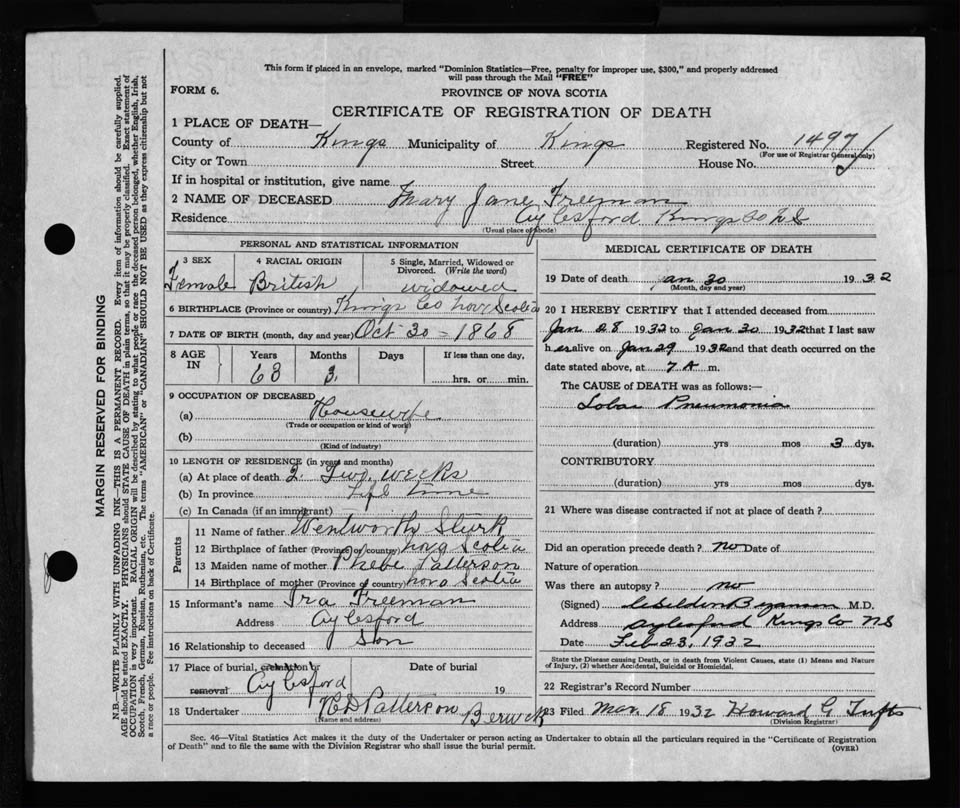 This form if placed in an envelope, marked "Dominion Statistics—Free, penalty for improper use, $300," and properly addressed
will pass through the Mail "FREE"
FORM 6.
PROVINCE OF NOVA SCOTIA
CERTIFICATE OF REGISTRATION OF DEATH
1 PLACE OF DEATH—
County of Kings Municipality of Kings Registered No. 1497
(For use of Registrar General only)
City or Town Street House No.
If in hospital or institution, give name
2 NAME OF DECEASED Mary Jane Freeman
Residence Aylesford Kings Co N S
(Usual place of abode)
PERSONAL AND STATISTICAL INFORMATION
3 SEX 4 RACIAL ORIGIN 5 Single, Married, Widowed or
Divorced. (Write the word)
Female British widowed
6 BIRTHPLACE (Province or country) Kings Co Nova Scotia
7 DATE OF BIRTH (month, day and year) Oct 30 = 1868
8 AGE IN Years Months Days If less than one day,
63 3 hrs. or min.
9 OCCUPATION OF DECEASED
(a) Housewife
(Trade or occupation or kind of work)
(b)
(Kind of industry)
10 LENGTH OF RESIDENCE (in years and months)
(a) At place of death 2 Two weeks
(b) In province Life time
(c) In Canada (if an immigrant)
Parents
11 Name of father Wentworth Sturk
12 Birthplace of father (Province or country) Nova Scotia
13 Maiden name of mother Phebe Patterson
14 Birthplace of mother (Province or country) Nova Scotia
15 Informant's name Ira Freeman
Address Aylesford
16 Relationship to deceased Son
17 Place of burial, cremation or Date of burial
removal Aylesford 19
18 Undertaker H D Patterson Berwick
(Name and address)
MEDICAL CERTIFICATE OF DEATH
19 Date of death Jan 30 1932
(Month, day and year)
20 I HEREBY CERTIFY that I attended deceased from
Jan 28 1932 to Jan 30 1932 that I last saw
her alive on Jan 29 1932 and that death occurred on the
date stated above, at 7 A m.
The CAUSE of DEATH was as follows:—
Lobar Pneumonia
(duration) yrs mos 3 dys.
CONTRIBUTORY
(duration) yrs mos dys.
21 Where was disease contracted if not at place of death?
Did an operation precede death? no Date of
Nature of operation
Was there an autopsy? no
(Signed) M.D.
Address Aylesford Kings Co NS
Date Feb 23, 1932
State the Disease causing Death, or in death from Violent Causes, state (1) Means and Nature
of Injury, (2) whether Accidental, Suicidal or Homicidal.
22 Registrar's Record Number
23 Filed Mar. 18 1932 Howard G Tufts
(Division Registrar)
Sec. 46—Vital Statistics Act makes it the duty of the Undertaker or person acting as Undertaker to obtain all the particulars required in the "Certificate of Registration
of Death" and to file the same with the Division Registrar who shall issue the burial permit.
(OVER)
MARGIN RESERVED FOR BINDING
N.B.—WRITE PLAINLY WITH UNFADING INK—THIS IS A PERMANENT RECORD. Every item of information should be carefully supplied.
AGE should be stated EXACTLY. PHYSICIANS should STATE CAUSE OF DEATH in plain terms, so that it may be properly classified. Exact statement of
OCCUPATION is very important. RACIAL ORIGIN will be described by stating to what people or race the deceased person belonged, whether English, Irish,
Scotch, French, German, Russian, Ruthenian, etc. The terms "AMERICAN" or "CANADIAN" SHOULD NOT BE USED as they express citizenship but not
a race or people. See instructions on back of Certificate.